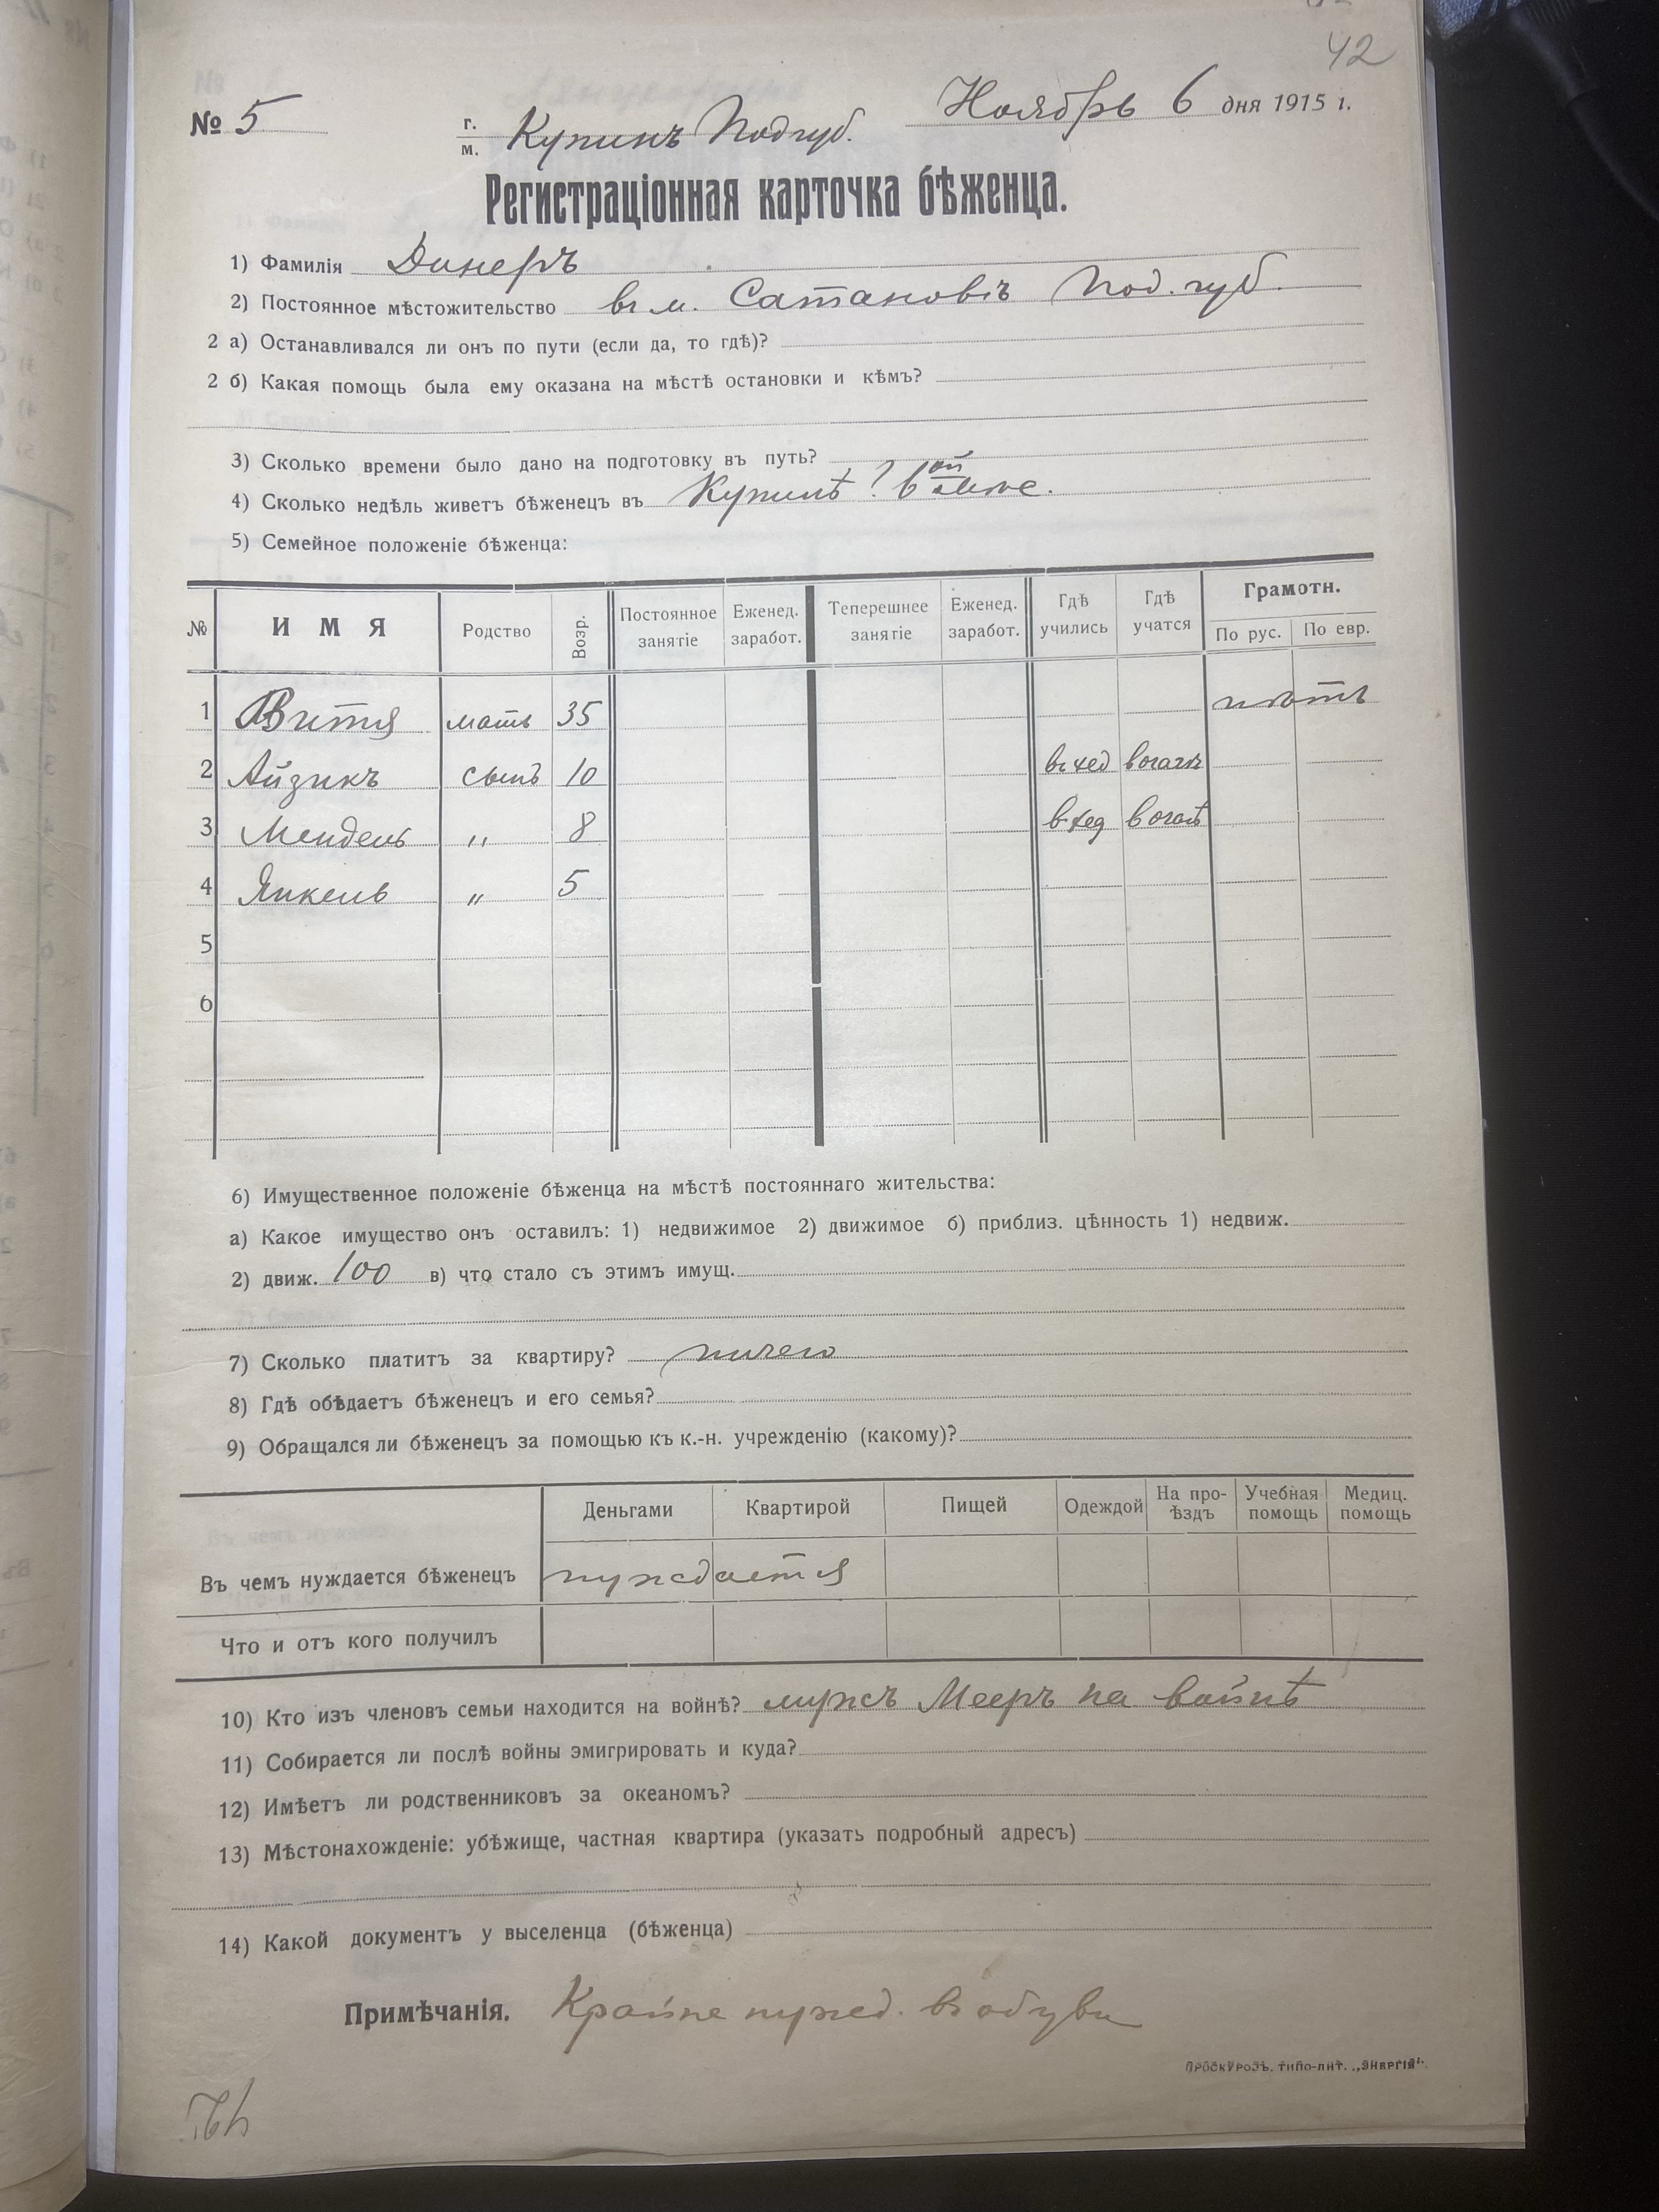 42
№ 5
г. м. Купинъ Подгуб.
Ноябрь 6 дня 1915 г.
Регистраціонная карточка бѣженца.
1) Фамилія Динеръ
2) Постоянное мѣстожительство въ м. Сатановѣ Под. губ.
2 а) Останавливался ли онъ по пути (если да, то гдѣ)?
2 б) Какая помощь была ему оказана на мѣстѣ остановки и кѣмъ?
3) Сколько времени было дано на подготовку въ путь?
4) Сколько недѣль живетъ бѣженецъ въ Купинѣ ?
5) Семейное положеніе бѣженца:
№ ИМЯ Родство Возр. Постоянное занятіе Еженед. заработ. Теперешнее занятіе Еженед. заработ. Гдѣ учились Гдѣ учатся Грамотн. По рус. По евр.
1 Витя мать 35 нѣтъ
2 Айзикъ сынъ 10 въ хед
3 Мендель " 8 въ хед
4 Янкель " 5
5
6
6) Имущественное положеніе бѣженца на мѣстѣ постояннаго жительства:
а) Какое имущество онъ оставилъ: 1) недвижимое 2) движимое б) приблиз. цѣнность 1) недвиж.
2) движ. 100 в) что стало съ этимъ имущ.
7) Сколько платитъ за квартиру? ничего
8) Гдѣ обѣдаетъ бѣженецъ и его семья?
9) Обращался ли бѣженецъ за помощью къ к.-н. учрежденію (какому)?
Деньгами Квартирой Пищей Одеждой На про-ѣздъ Учебная помощь Медиц. помощь
Въ чемъ нуждается бѣженецъ нуждается
Что и отъ кого получилъ
10) Кто изъ членовъ семьи находится на войнѣ? мужъ Мееръ на войнѣ
11) Собирается ли послѣ войны эмигрировать и куда?
12) Имѣетъ ли родственниковъ за океаномъ?
13) Мѣстонахожденіе: убѣжище, частная квартира (указать подробный адресъ)
14) Какой документъ у выселенца (бѣженца)
Примѣчанія. Крайне нужд. въ обуви
Проскуровъ. типо-лит. „Энергія".